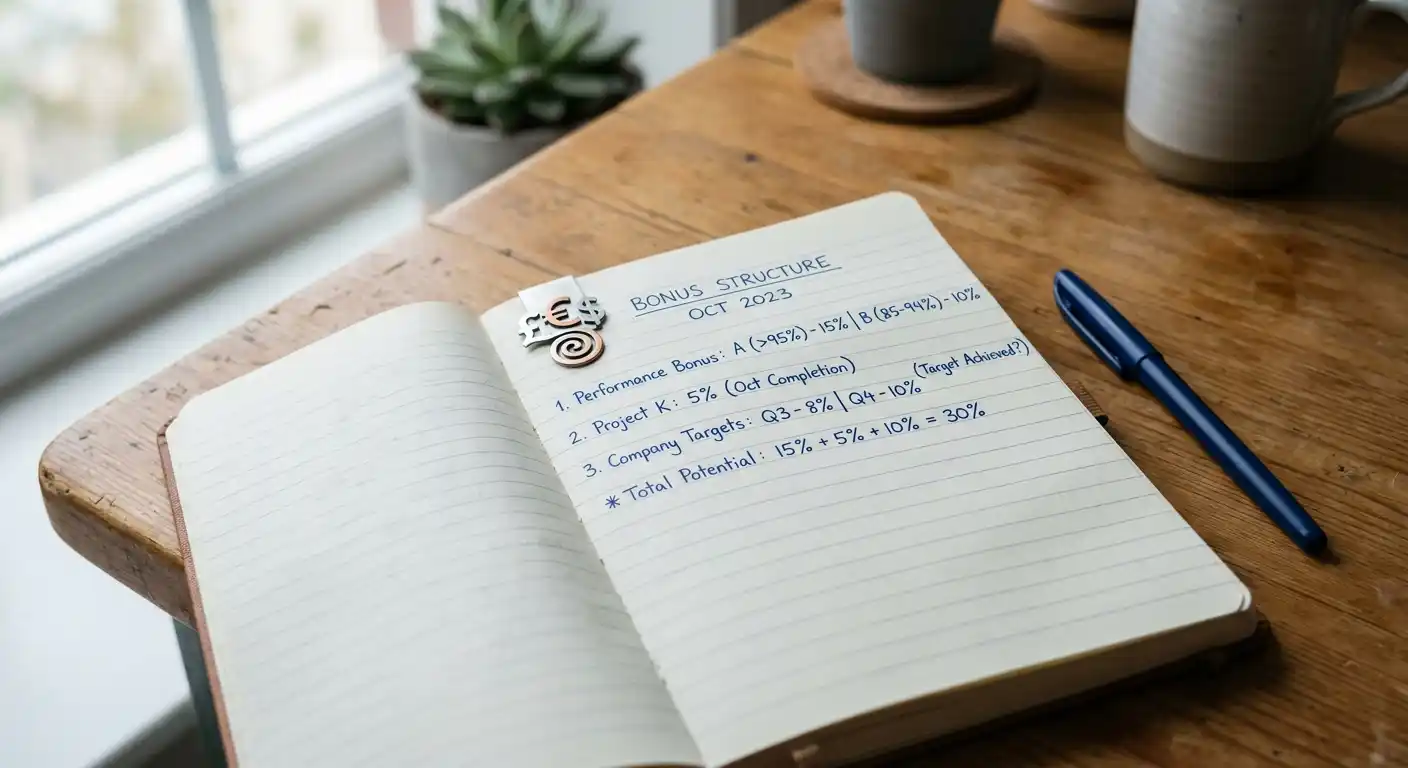 BONUS STRUCTURE
OCT 2023
1. Performance Bonus: A (>95%) - 15% | B (85-94%) - 10%
2. Project K: 5% (Oct Completion)
3. Company Targets: Q3 - 8% | Q4 - 10% (Target Achieved?)
* Total Potential: 15% + 5% + 10% = 30%
£ € $